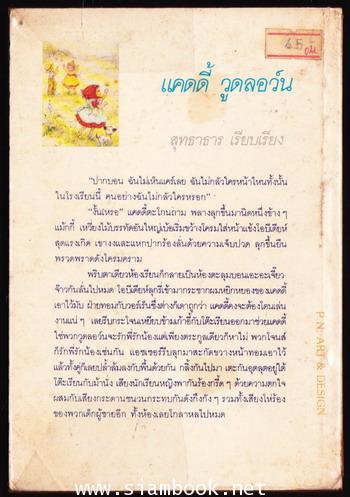 45
แคดดี้ วูดลอว์น
สุทธาธาร เรียบเรียง
"ปากบอน ฉันไม่เห็นแคร์เลย ฉันไม่กลัวใครหน้าไหนทั้งนั้น
ในโรงเรียนนี้ คนอย่างฉันไม่กลัวใครหรอก"
"งั้นเหรอ" แคดดี้ตะโกนถาม พลางลุกขึ้นมานิดหนึ่งข้าง ๆ
แม็กกี้ เหวี่ยงไม้บรรทัดอันใหญ่บ้อเริ่มขว้างโครมใส่หน้าแข้งโอบีเดียห์
สุดแรงเกิด เขางงและแหกปากร้องลั่นด้วยความเจ็บปวด ลุกขึ้นยืน
พรวดพราดดังโครมคราม
พริบตาเดียวห้องเรียนก็กลายเป็นห้องตะลุมบอนเอะอะเจี๊ยว
จ๊าวกันลั่นไปหมด โอบีเดียห์ลุกรี่เข้ามากระชากผมหยิกหยองของแคดดี้
เอาไว้มับ ฝ่ายทอมกับวอร์เร็นซึ่งต่างก็เดาถูกว่า แคดดี้คงจะต้องโดนเล่น
งานแน่ ๆ เลยรีบกระโจนเหยียบข้ามเก้าอี้กับโต๊ะเรียนออกมาช่วยแคดดี้
ใช่พวกวูดลอว์นจะรักพี่รักน้องแต่เพียงตระกูลเดียวก็หาไม่ พวกโจนส์
ก็รักพี่รักน้องเช่นกัน แอชเชอร์รีบลุกมาสะกัดขวางหน้าทอมเอาไว้
แล้วทั้งคู่ก็เลยปล้ำล้มลงกับพื้นด้วยกัน กลิ้งกันไปมา เตะกันอุตลุตอยู่ใต้
โต๊ะเรียนกับม้านั่ง เสียงนักเรียนหญิงพากันร้องกรี๊ด ๆ ด้วยความตกใจ
ผสมกับเสียงกระดานชนวนกระทบกันดังกึงกัง ๆ รวมทั้งเสียงโห่ร้อง
ของพวกเด็กผู้ชายอีก ทั้งห้องเลยโกลาหลไปหมด
P.N. ART & DESIGN
www.siambook.net